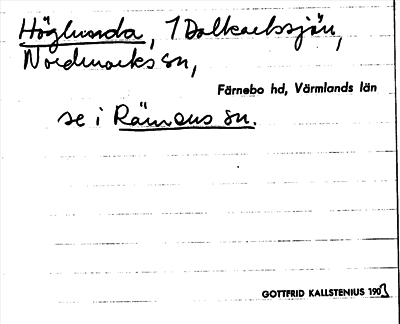 Höglunda, 1 Dalkarlssjön,
Nordmarks sn,
Färnebo hd, Värmlands län
se i Rämens sn.
GOTTFRID KALLSTENIUS 1903